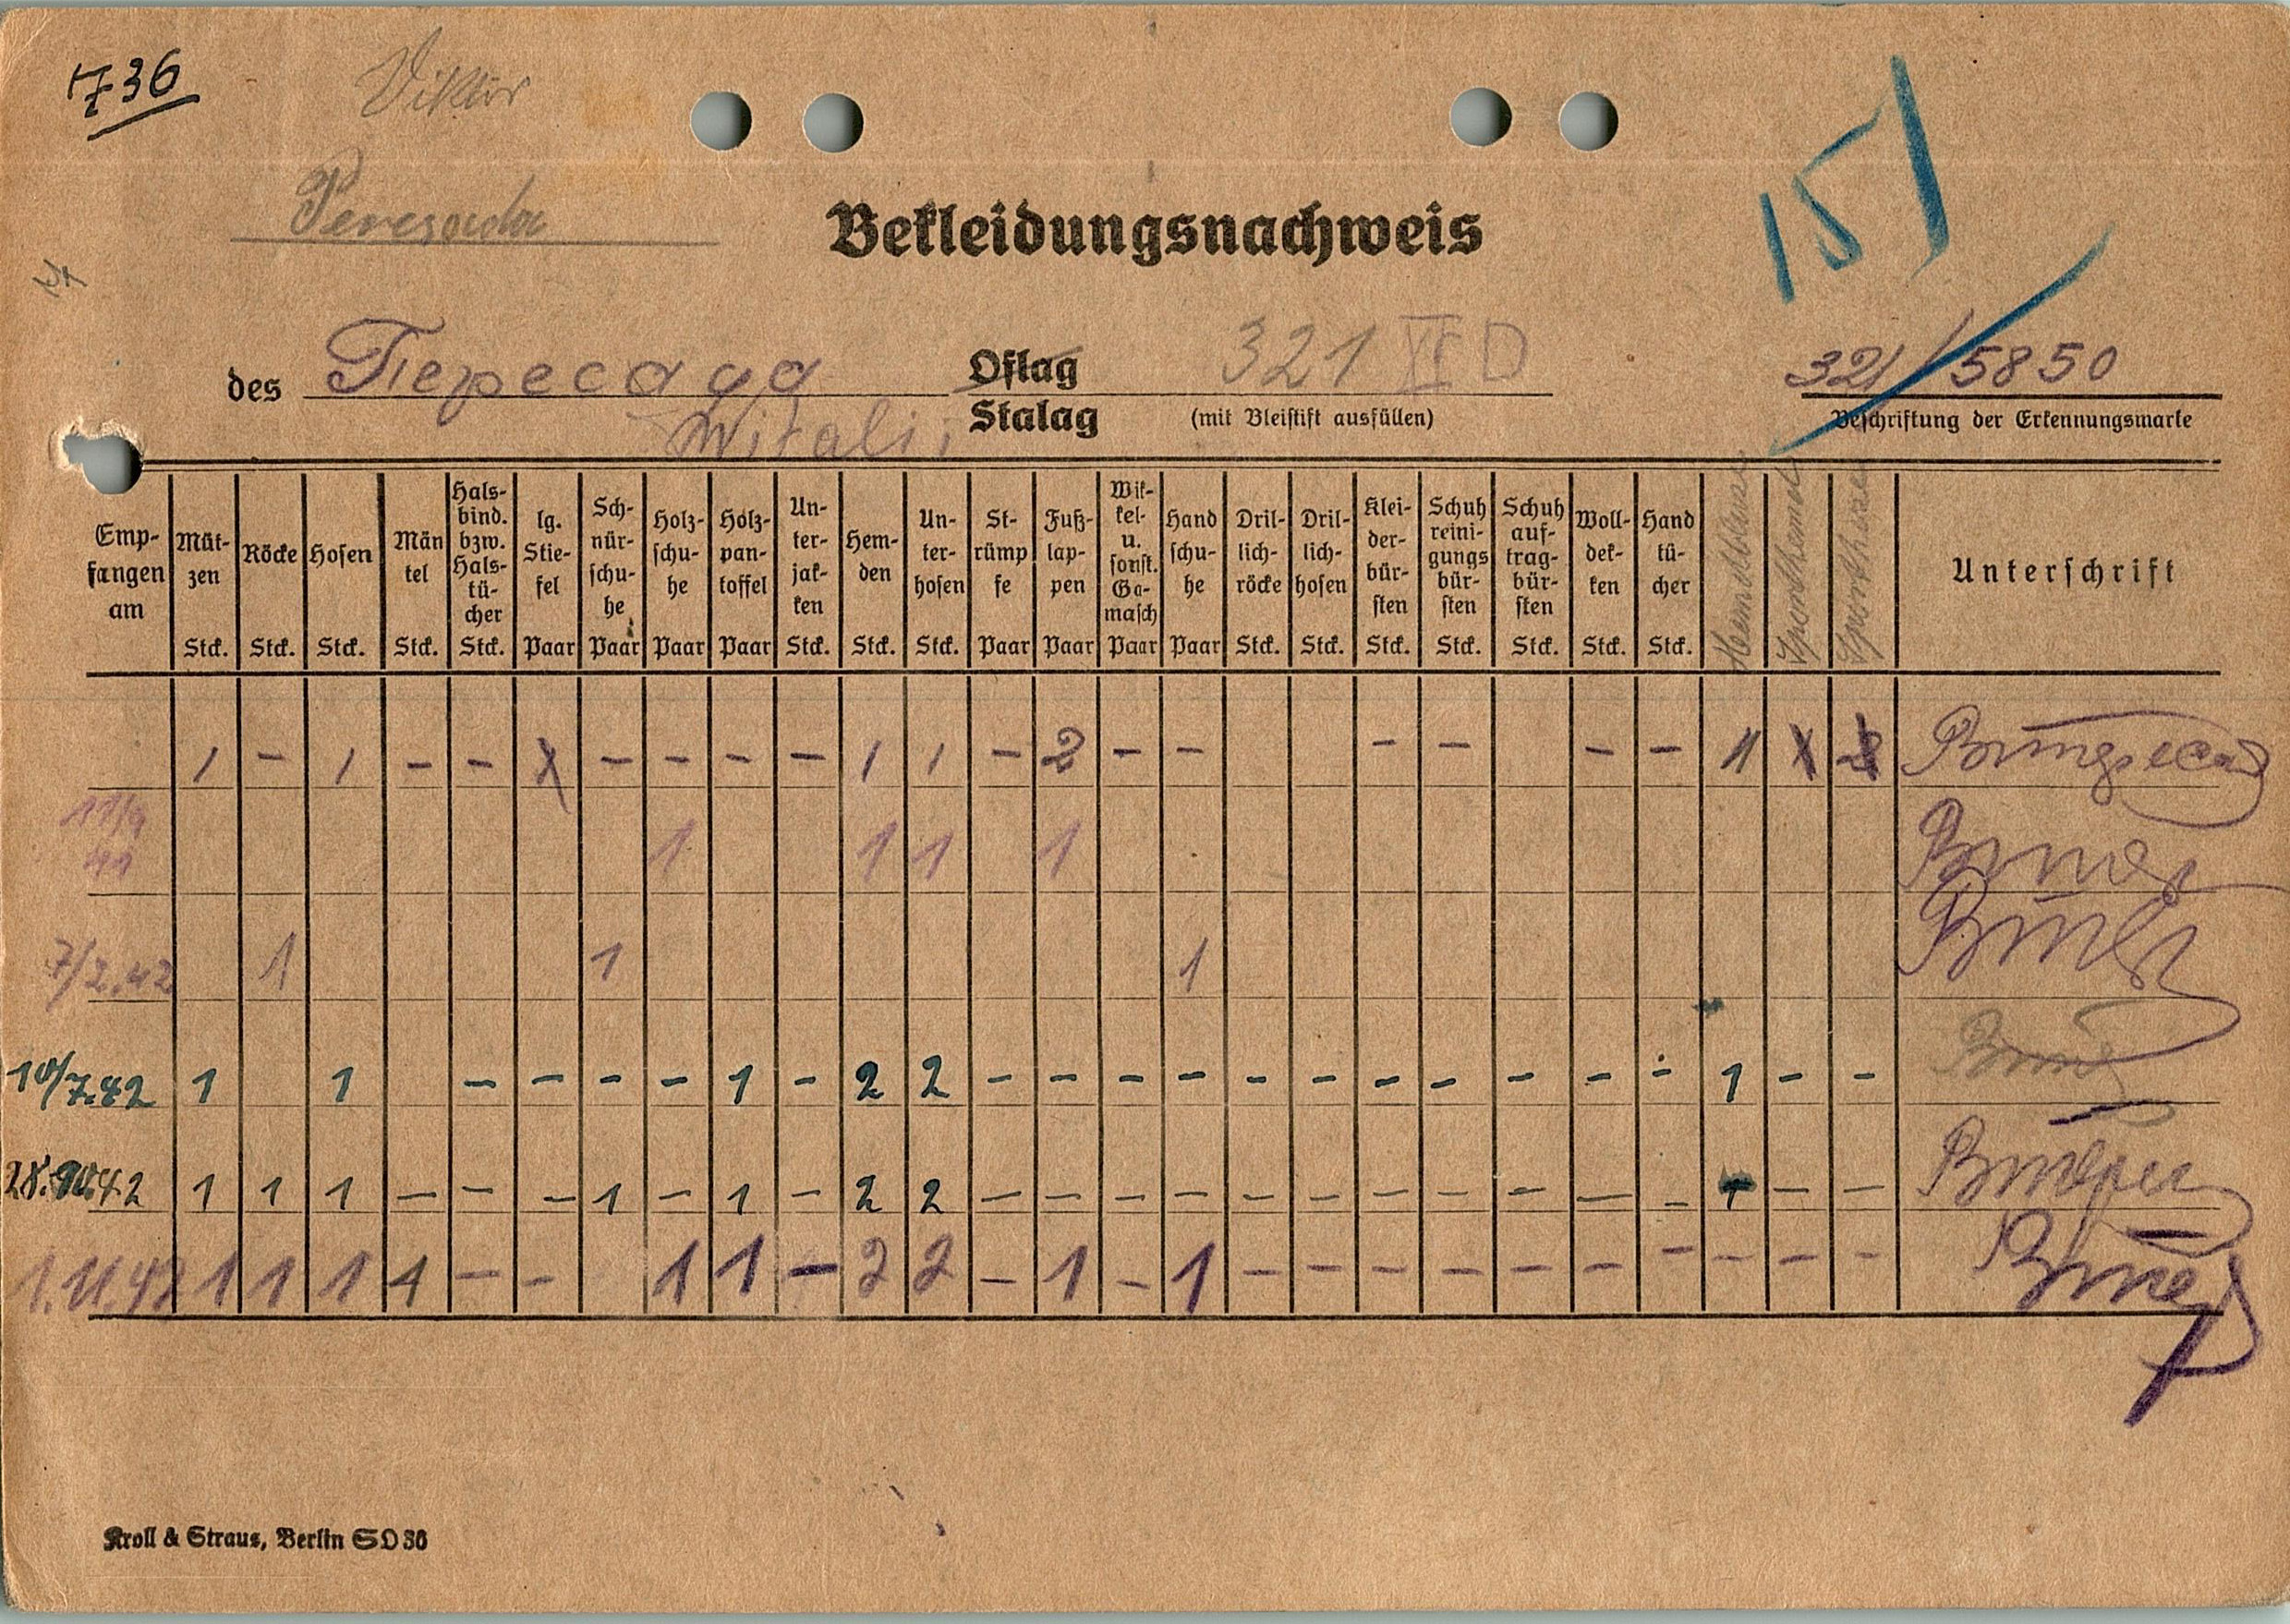 736
Viktor
Peresada
151
Bekleidungsnachweis
des Пересада Oflag 321 XI D 321/5850
Witalii Stalag (mit Bleistift ausfüllen) Beschriftung der Erkennungsmarke
Empfangen am Mützen Stck. Röcke Stck. Hosen Stck. Mäntel Stck. Halsbind. bzw. Halstücher Stck. lg. Stiefel Paar Schnürschuhe Paar Holzschuhe Paar Holzpantoffel Paar Unterjakken Stck. Hemden Stck. Unterhosen Stck. Strümpfe Paar Fußlappen Paar Wikkel- u. sonst. Gamasch Paar Handschuhe Paar Drillichröcke Stck. Drillichhosen Stck. Kleiderbürsten Stck. Schuhreinigungsbürsten Stck. Schuhauftragbürsten Stck. Wolldekken Stck. Handtücher Stck. Unterschrift
1 - 1 - - X - - - - 1 1 - 2 - - - - - - 1 X
11/9 41 1 1 1 1
7/2.42 1 1 1
10/7.42 1 1 - - - - 1 - 2 2 - - - - - - - - - - - 1 - -
28.10.42 1 1 1 - - - 1 - 1 - 2 2 - - - - - - - - - - - 1 - -
1.11.42 1 1 1 1 - - 1 1 - 2 2 - 1 - 1 - - - - - - - - - -
Kroll & Straus, Berlin SO 36